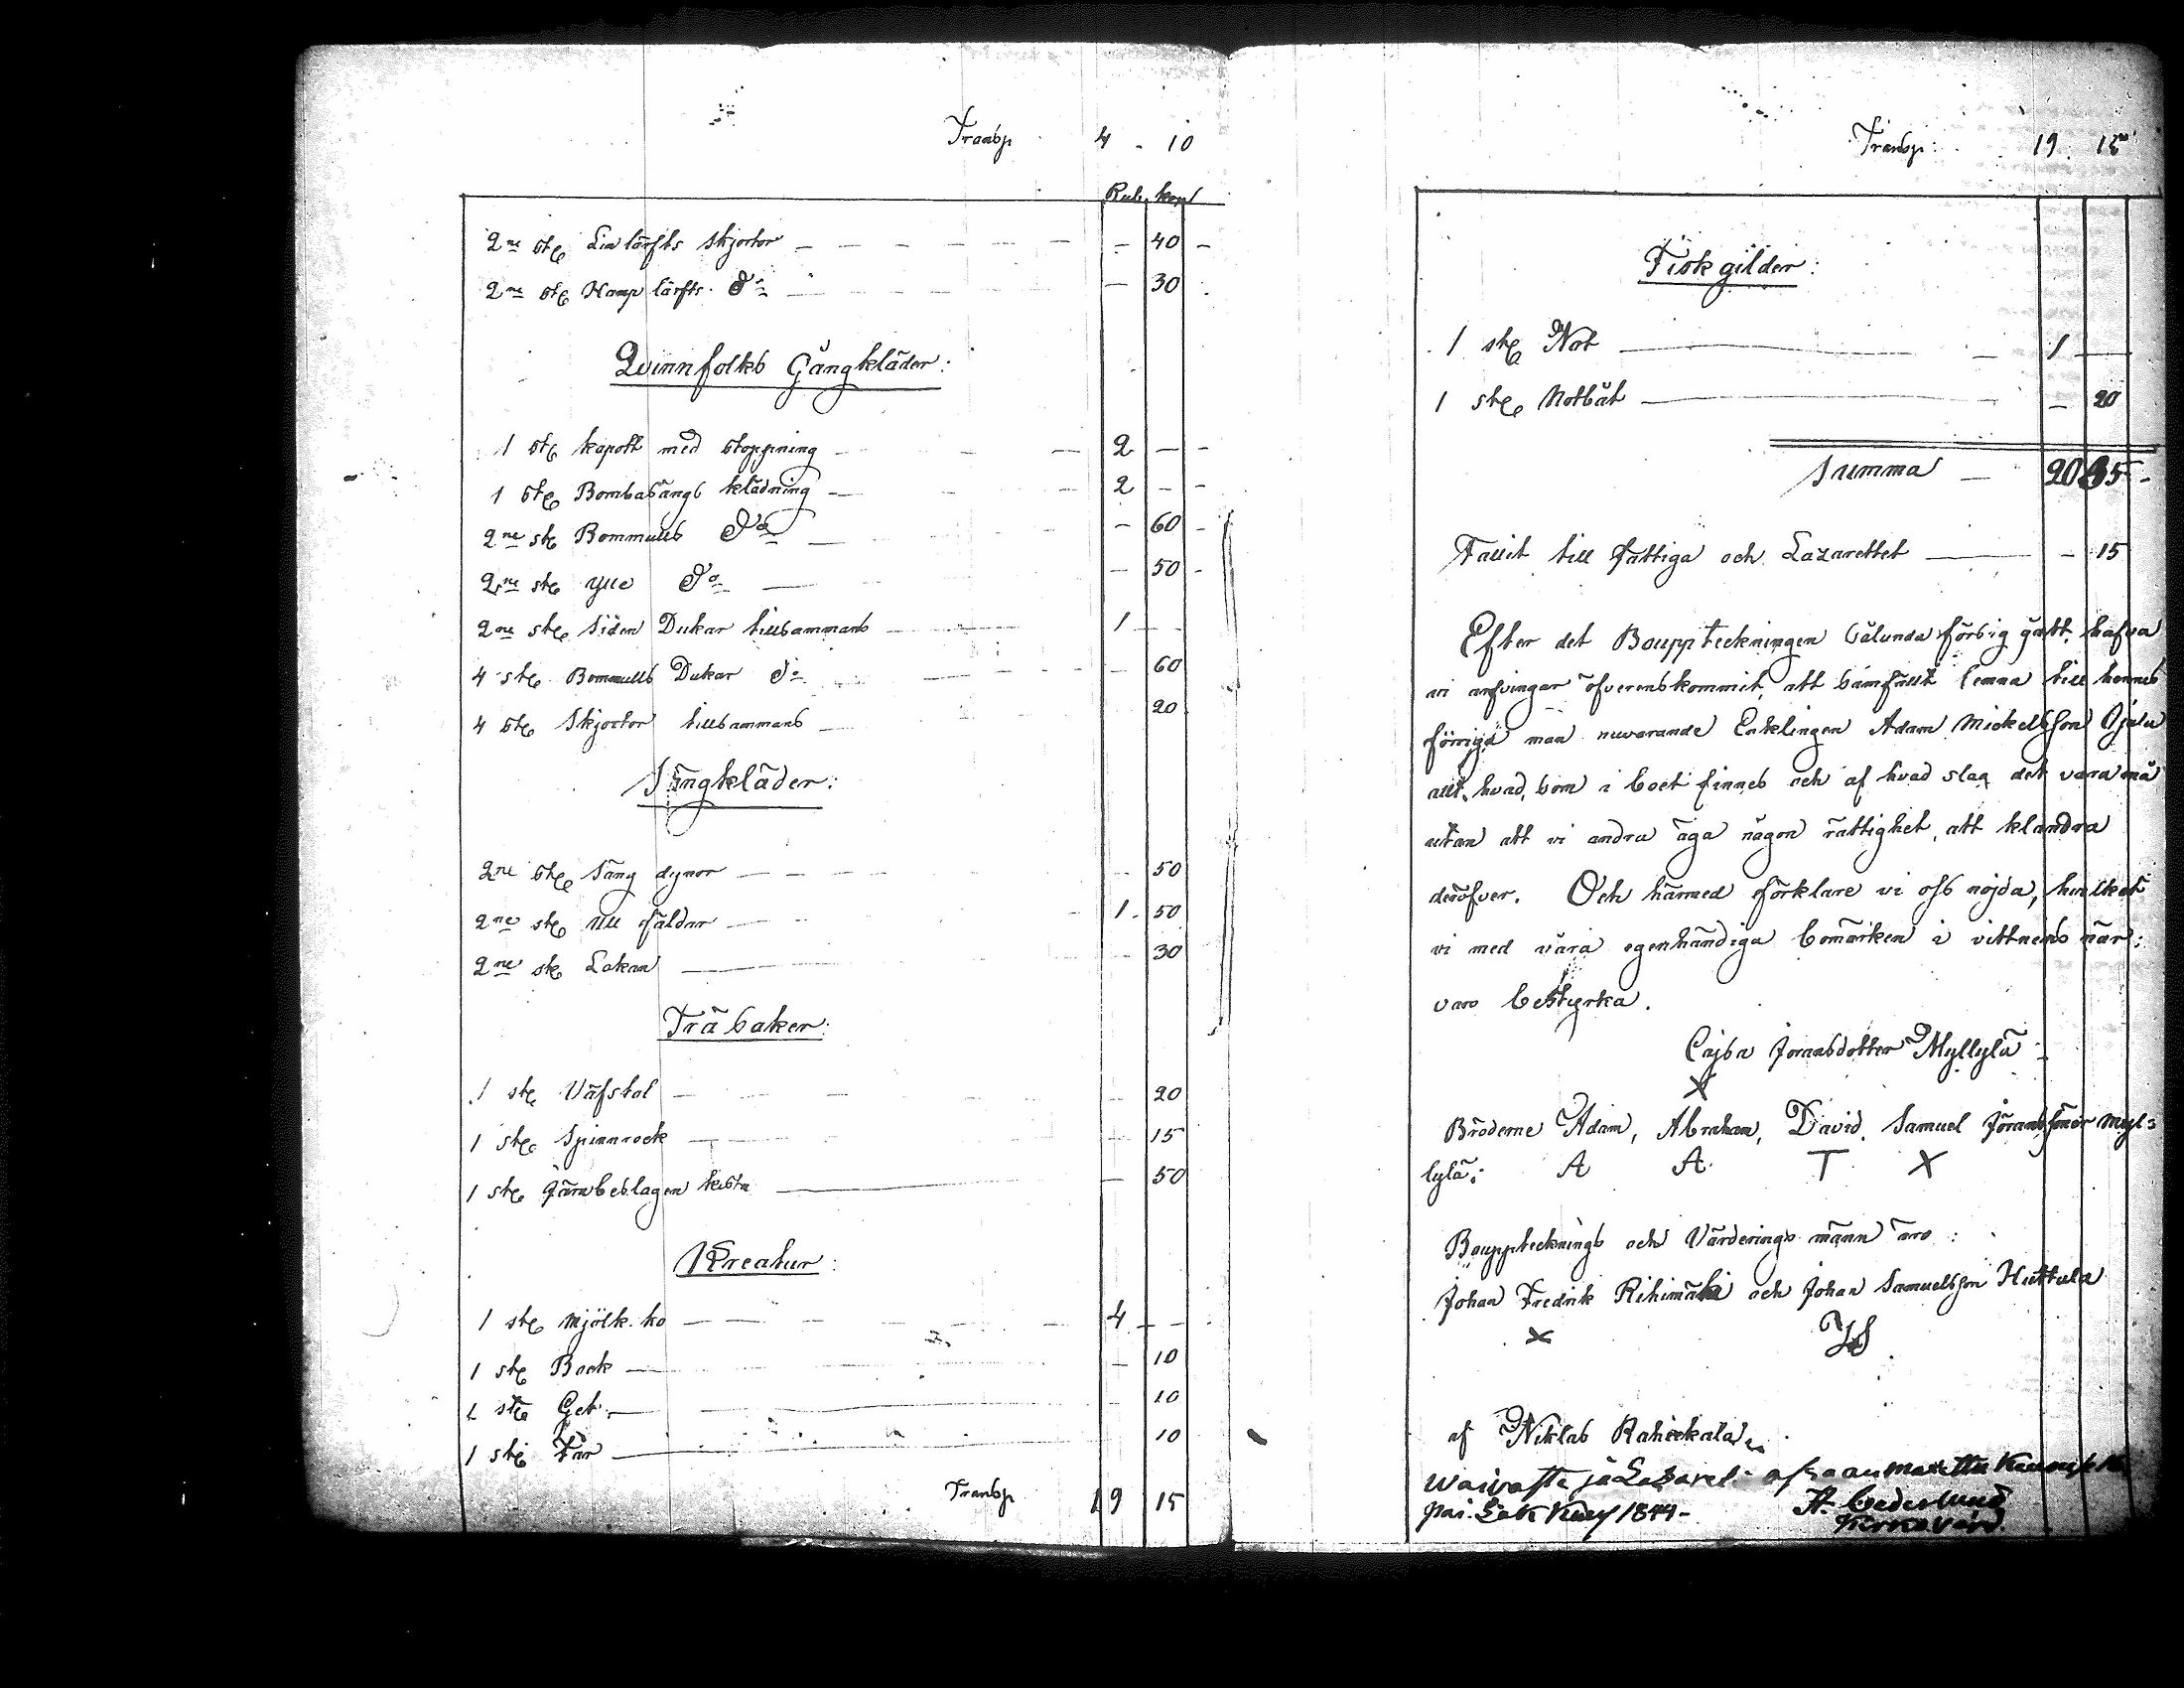 Transp 4 - 10
Rub. kop
2ne st. Lin lärfts skjortor — 40 -
2ne st. Hamp lärfts Do — 30
Qvinnfolks Gångkläder:
1 st. kapott med stoppning — 2 — -
1 st. Bombasängs klädning — 2 - -
2ne st. Bommulls Do — - 60 -
2ne st. Ylle Do — 50 -
2ne st. Siden Dukar tillsammans — 1 —
4 st. Bommulls Dukar Do — 60
4 st. Skjortor tillsammans — 20
Sängkläder:
2ne st. Säng dynor — 50
2ne st. Ull fäldar — 1. 50
2ne st. Lakan — 30
Träsaker:
1 st. Väfstol — 20
1 st. Spinnrock — 15
1 st. Järnbeslagen kista — 50
Kreatur:
1 st. Mjölk. ko — 4 - -
1 st. Bock — 10
1 st. Get — 10
1 st. Får — 10
Transp 19 15
Transp: 19. 15
Fiskgilder:
1 st. Not — 1 —
1 st. Notbåt — 20
Summa — 20 35 -
Fallit till Fattiga och Lazarettet — - 15
Efter det Bouppteckningen sålunda försig gått, hafva
vi arfvingar öfverenskommit, att samfällt lemna till hennes
förriga man nuvarande Enklingen Adam Mickelsson Ojala
allt, hvad som i boet finnes och af hvad slag det vara må
utan att vi andra äga någon rättighet, att klandra
deröfver. Och härmed förklare vi oss nöjda, hvilket
vi med våra egenhändiga bomärken i vittnens när:
varo bestyrka.
Cajsa Joransdotter Myllylä
X
Bröderne Adam, Abraham, David, Samuel Joranssöner Myl=
lylä: A A T X
Boupptecknings och Värderings männ äro:
Johan Fredrik Rihimäki och Johan Samuelsson Huttula
X JS
af Niklas Rahickala
Waivaste ja Lazaret
1844 - A. Cederlund